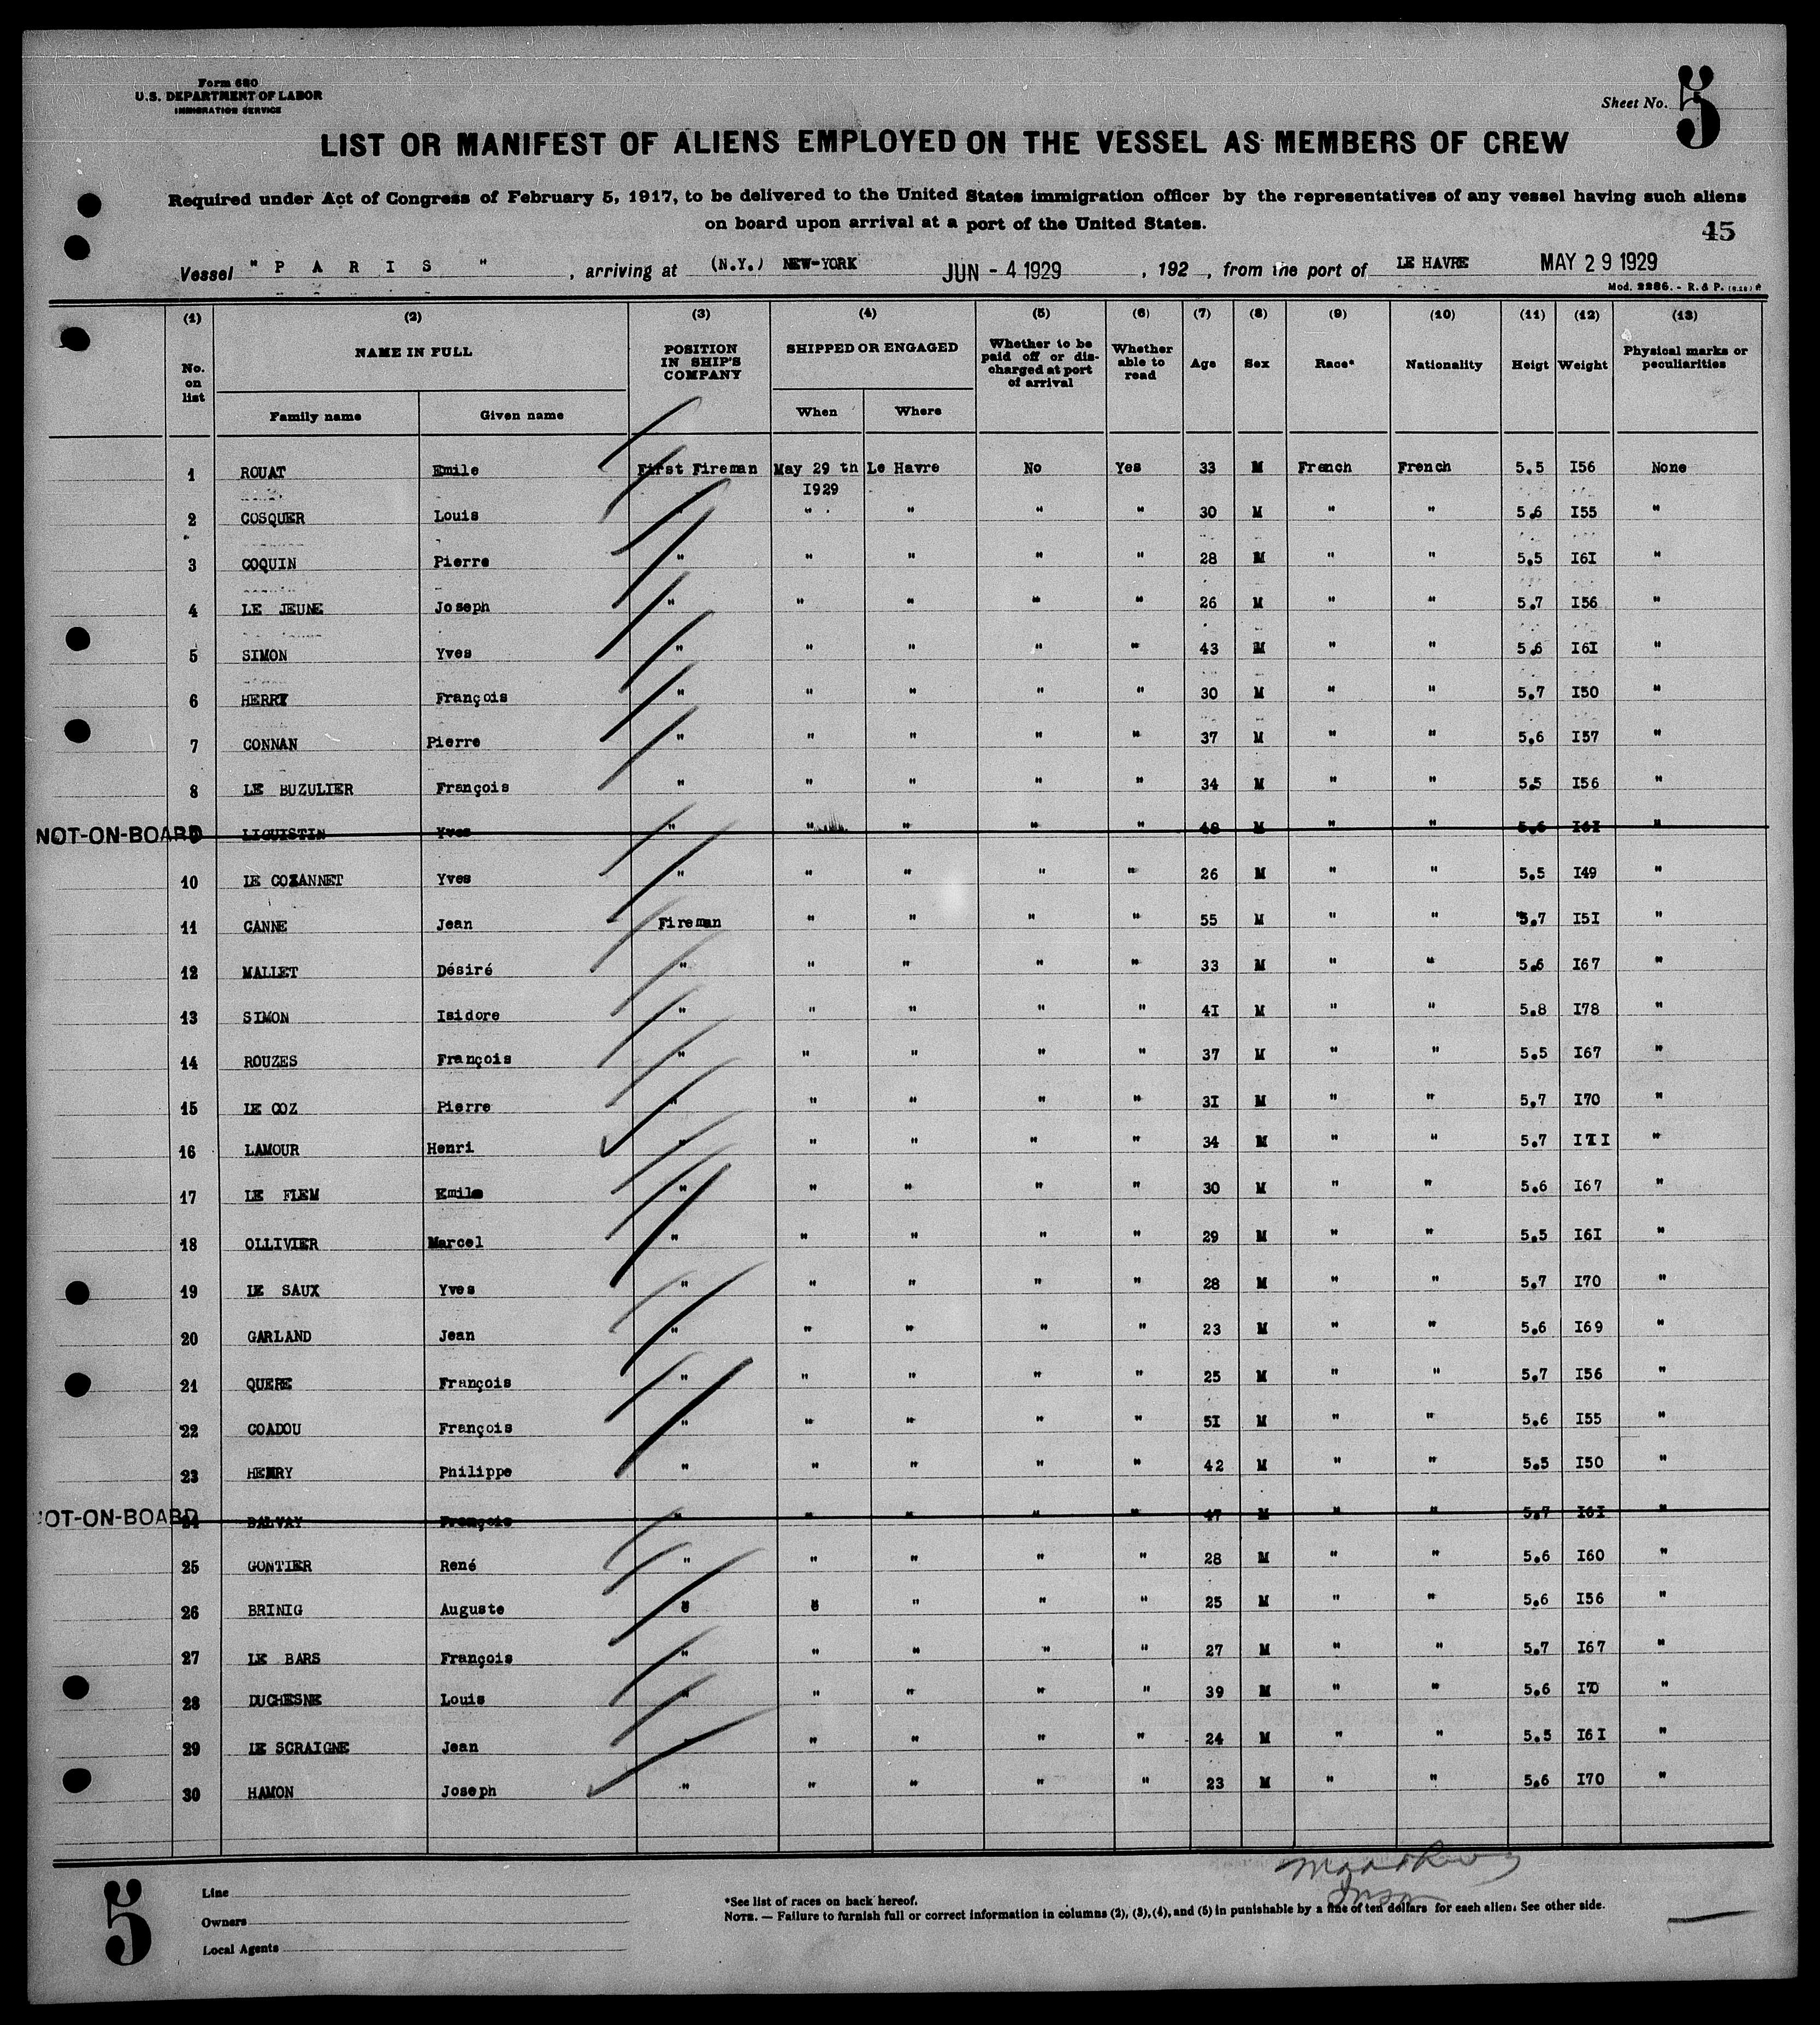 Form 680
U.S. DEPARTMENT OF LABOR
IMMIGRATION SERVICE
Sheet No. 5
LIST OR MANIFEST OF ALIENS EMPLOYED ON THE VESSEL AS MEMBERS OF CREW
Required under Act of Congress of February 5, 1917, to be delivered to the United States immigration officer by the representatives of any vessel having such aliens
on board upon arrival at a port of the United States.
45
Vessel " P A R I S " , arriving at (N.Y.) NEW-YORK JUN - 4 1929 , 192 , from the port of LE HAVRE MAY 29 1929
Mod. 2286. - R. & P.
(1) (2) (3) (4) (5) (6) (7) (8) (9) (10) (11) (12) (13)
No. on list NAME IN FULL POSITION IN SHIP'S COMPANY SHIPPED OR ENGAGED Whether to be paid off or discharged at port of arrival Whether able to read Age Sex Race* Nationality Heigt Weight Physical marks or peculiarities
Family name Given name When Where
1 ROUAT Emile First Fireman May 29 th Le Havre No Yes 33 M French French 5.5 I56 None
I929
2 COSQUER Louis " " " " " 30 M " " 5.6 I55 "
3 COQUIN Pierre " " " " " 28 M " " 5.5 I6I "
4 LE JEUNE Joseph " " " " " 26 M " " 5.7 I56 "
5 SIMON Yves " " " " " 43 M " " 5.6 I6I "
6 HERRY François " " " " " 30 M " " 5.7 I50 "
7 CONNAN Pierre " " " " " 37 M " " 5.6 I57 "
8 LE BUZULIER François " " " " " 34 M " " 5.5 I56 "
NOT-ON-BOARD 9 LIGUISTIN Yves " " " " " 48 M " " 5.6 I6I "
10 LE COZANNET Yves " " " " " 26 M " " 5.5 I49 "
11 CANNE Jean Fireman " " " " 55 M " " 5.7 I5I "
12 MALLET Désiré " " " " " 33 M " " 5.6 I67 "
13 SIMON Isidore " " " " " 4I M " " 5.8 I78 "
14 ROUZES François " " " " " 37 M " " 5.5 I67 "
15 LE COZ Pierre " " " " " 3I M " " 5.7 I70 "
16 LAMOUR Henri " " " " " 34 M " " 5.7 I7I "
17 LE FLEM Emile " " " " " 30 M " " 5.6 I67 "
18 OLLIVIER Marcel " " " " " 29 M " " 5.5 I6I "
19 LE SAUX Yves " " " " " 28 M " " 5.7 I70 "
20 GARLAND Jean " " " " " 23 M " " 5.6 I69 "
21 QUERE François " " " " " 25 M " " 5.7 I56 "
22 COADOU François " " " " " 5I M " " 5.6 I55 "
23 HENRY Philippe " " " " " 42 M " " 5.5 I50 "
NOT-ON-BOARD 24 DALVAY François " " " " " 47 M " " 5.7 I6I "
25 GONTIER René " " " " " 28 M " " 5.6 I60 "
26 BRINIG Auguste " " " " " 25 M " " 5.6 I56 "
27 LE BARS François " " " " " 27 M " " 5.7 I67 "
28 DUCHESNE Louis " " " " " 39 M " " 5.6 I70 "
29 LE SCRAIGNE Jean " " " " " 24 M " " 5.5 I6I "
30 HAMON Joseph " " " " " 23 M " " 5.6 I70 "
5
Line
Owners
Local Agents
*See list of races on back hereof.
NOTE. — Failure to furnish full or correct information in columns (2), (3), (4), and (5) in punishable by a fine of ten dollars for each alien. See other side.